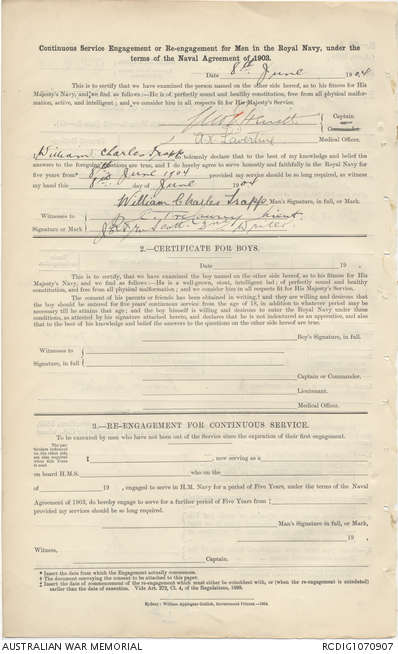 Continuous Service Engagement or Re-engagement for Men in the Royal Navy, under the
terms of the Naval Agreement of 1903.
Date 8th June 1904
This is to certify that we have examined the person named on the other side hereof, as to his fitness for His
Majesty's Navy, and we find as follows:—He is of perfectly sound and healthy constitution, free from all physical malfor-
mation, active, and intelligent; and we consider him in all respects fit for His Majesty's Service.
Captain
Commander.
Medical Officer.
William Charles Trapp solemnly declare that to the best of my knowledge and belief this
answers to the foregoing questions are true, and I do hereby agree to serve honestly and faithfully in the Royal Navy for
five years from 8th June 1904 provided my service should be so long required, as witness
my hand this 8th day of June 1904
William Charles Trapp Man's Signature, in full, or Mark.
Witnesses to
Signature or Mark
2.—CERTIFICATE FOR BOYS.
Date 19 .
This is to certify, that we have examined the boy named on the other side hereof, as to his fitness for His
Majesty's Navy, and we find as follows:—He is a well-grown, stout, intelligent lad; of perfectly sound and healthy
constitution, and free from all physical malformation; and we consider him in all respects fit for His Majesty's Service.
The consent of his parents or friends has been obtained in writing,† and they are willing and desirous that
the boy should be entered for five years' continuous service from the age of 18, in addition to whatever period may be
necessary till he attains that age; and the boy himself is willing and desirous to enter the Royal Navy under these
conditions, as attested by his signature attached hereto, and declares that he is not indentured as an apprentice, and also
that to the best of his knowledge and belief the answers to the questions on the other side hereof are true.
Boy's Signature, in full.
Witnesses to
Signature, in full
Captain or Commander.
Lieutenant.
Medical Officer.
3.—RE-ENGAGEMENT FOR CONTINUOUS SERVICE.
To be executed by men who have not been out of the Service since the expiration of their first engagement.
The particulars indicated on the other side, are also required when this Form is used
I , now serving as a
on board H.M.S. who on the
of 19 , engaged to serve in H.M. Navy for a period of Five Years, under the terms of the Naval
Agreement of 1903, do hereby engage to serve for a further period of Five Years from ‡
provided my services should be so long required.
Man's Signature in full, or Mark,
19 .
Witness,
Captain.
* Insert the date from which the Engagement actually commences.
† The document conveying the consent to be attached to this paper.
‡ Insert the date of commencement of the re-engagement which must either be coincident with, or (when the re-engagement is antedated)
earlier than the date of execution. Vide Art. 372, Cl. 4, of the Regulations, 1899.
Sydney: William Applegate Gullick, Government Printer.—1904.
AUSTRALIAN WAR MEMORIAL
RCDIG1070907